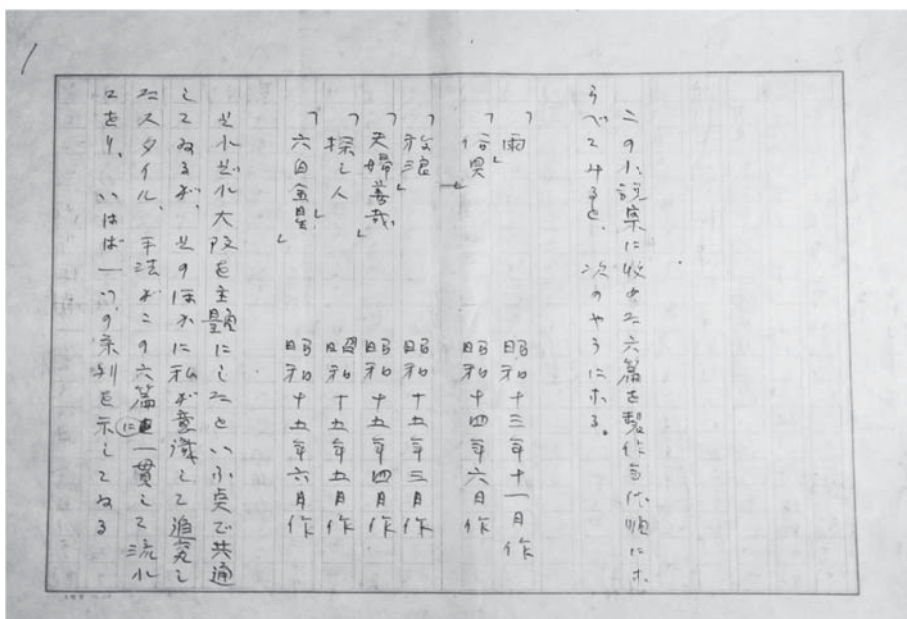 1
この小説集に收めた六篇を製作年代順にな
らべてみると、次のやうになる。
「雨」 昭和十三年十一月作
「俗臭」 昭和十四年六月作
「放浪」 昭和十五年三月作
「夫婦善哉」 昭和十五年四月作
「探し人」 昭和十五年五月作
「六白金星」 昭和十五年六月作
それぞれ大阪を主題にしたといふ点で共通
してゐるが、そのほかに私が意識して追究し
たスタイル、手法がこの六篇に一貫して流れ
てをり、いはば一つの系列を示してゐる